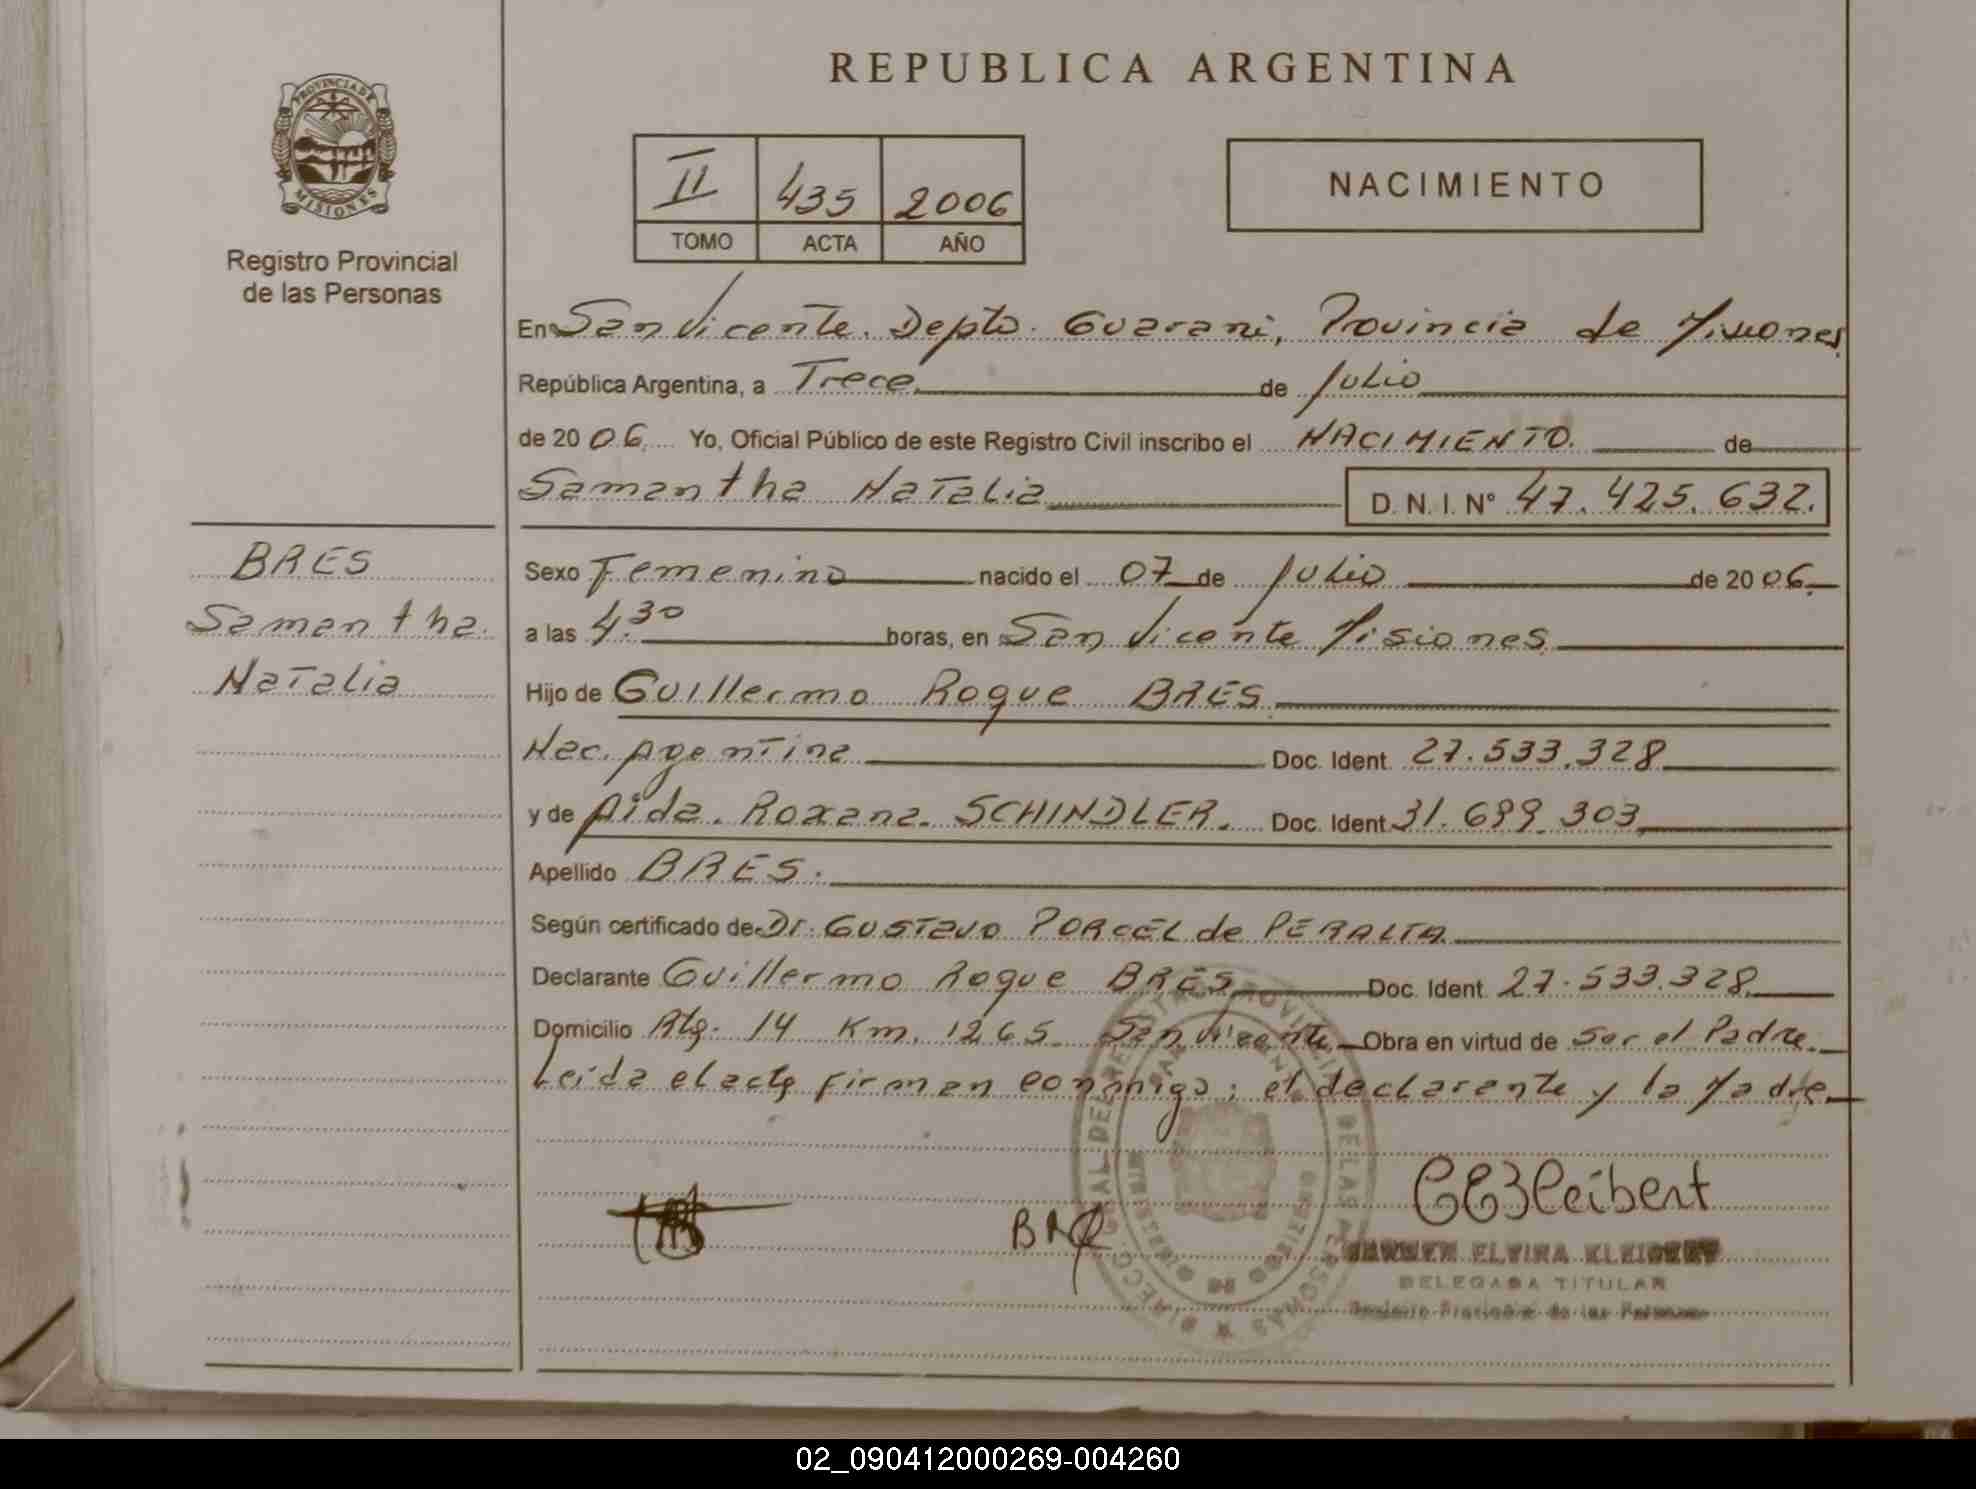 PROVINCIA DE
MISIONES
Registro Provincial
de las Personas
BRES
Samantha.
Natalia
REPUBLICA ARGENTINA
II 435 2006
TOMO ACTA AÑO
NACIMIENTO
En San Vicente. Depto. Guarani, Provincia de Misiones
República Argentina, a Trece de julio
de 20 06. Yo, Oficial Público de este Registro Civil inscribo el NACIMIENTO. de
Samantha Natalia D. N. I. N° 47.425.632.
Sexo Femenino nacido el 07 de julio de 20 06.
a las 4.30 horas, en San Vicente Misiones
Hijo de Guillermo Roque BRES
Nac. Agentina Doc. Ident. 27.533.328
y de Aida. Roxana. SCHINDLER. Doc. Ident. 31.699.303
Apellido BRES.
Según certificado de Dr. GUSTAVO PORCEL de PERALTA
Declarante Guillermo Roque BRES Doc. Ident. 27.533.328
Domicilio Km. 1265 San Vicente Obra en virtud de ser el Padre.
Leida el acta firman conmigo; el declarante y la Madre
BRE
CEKleibert
CARMEN ELVIRA KLEIBERT
DELEGADA TITULAR
Registro Provincial de las Personas
02_090412000269-004260